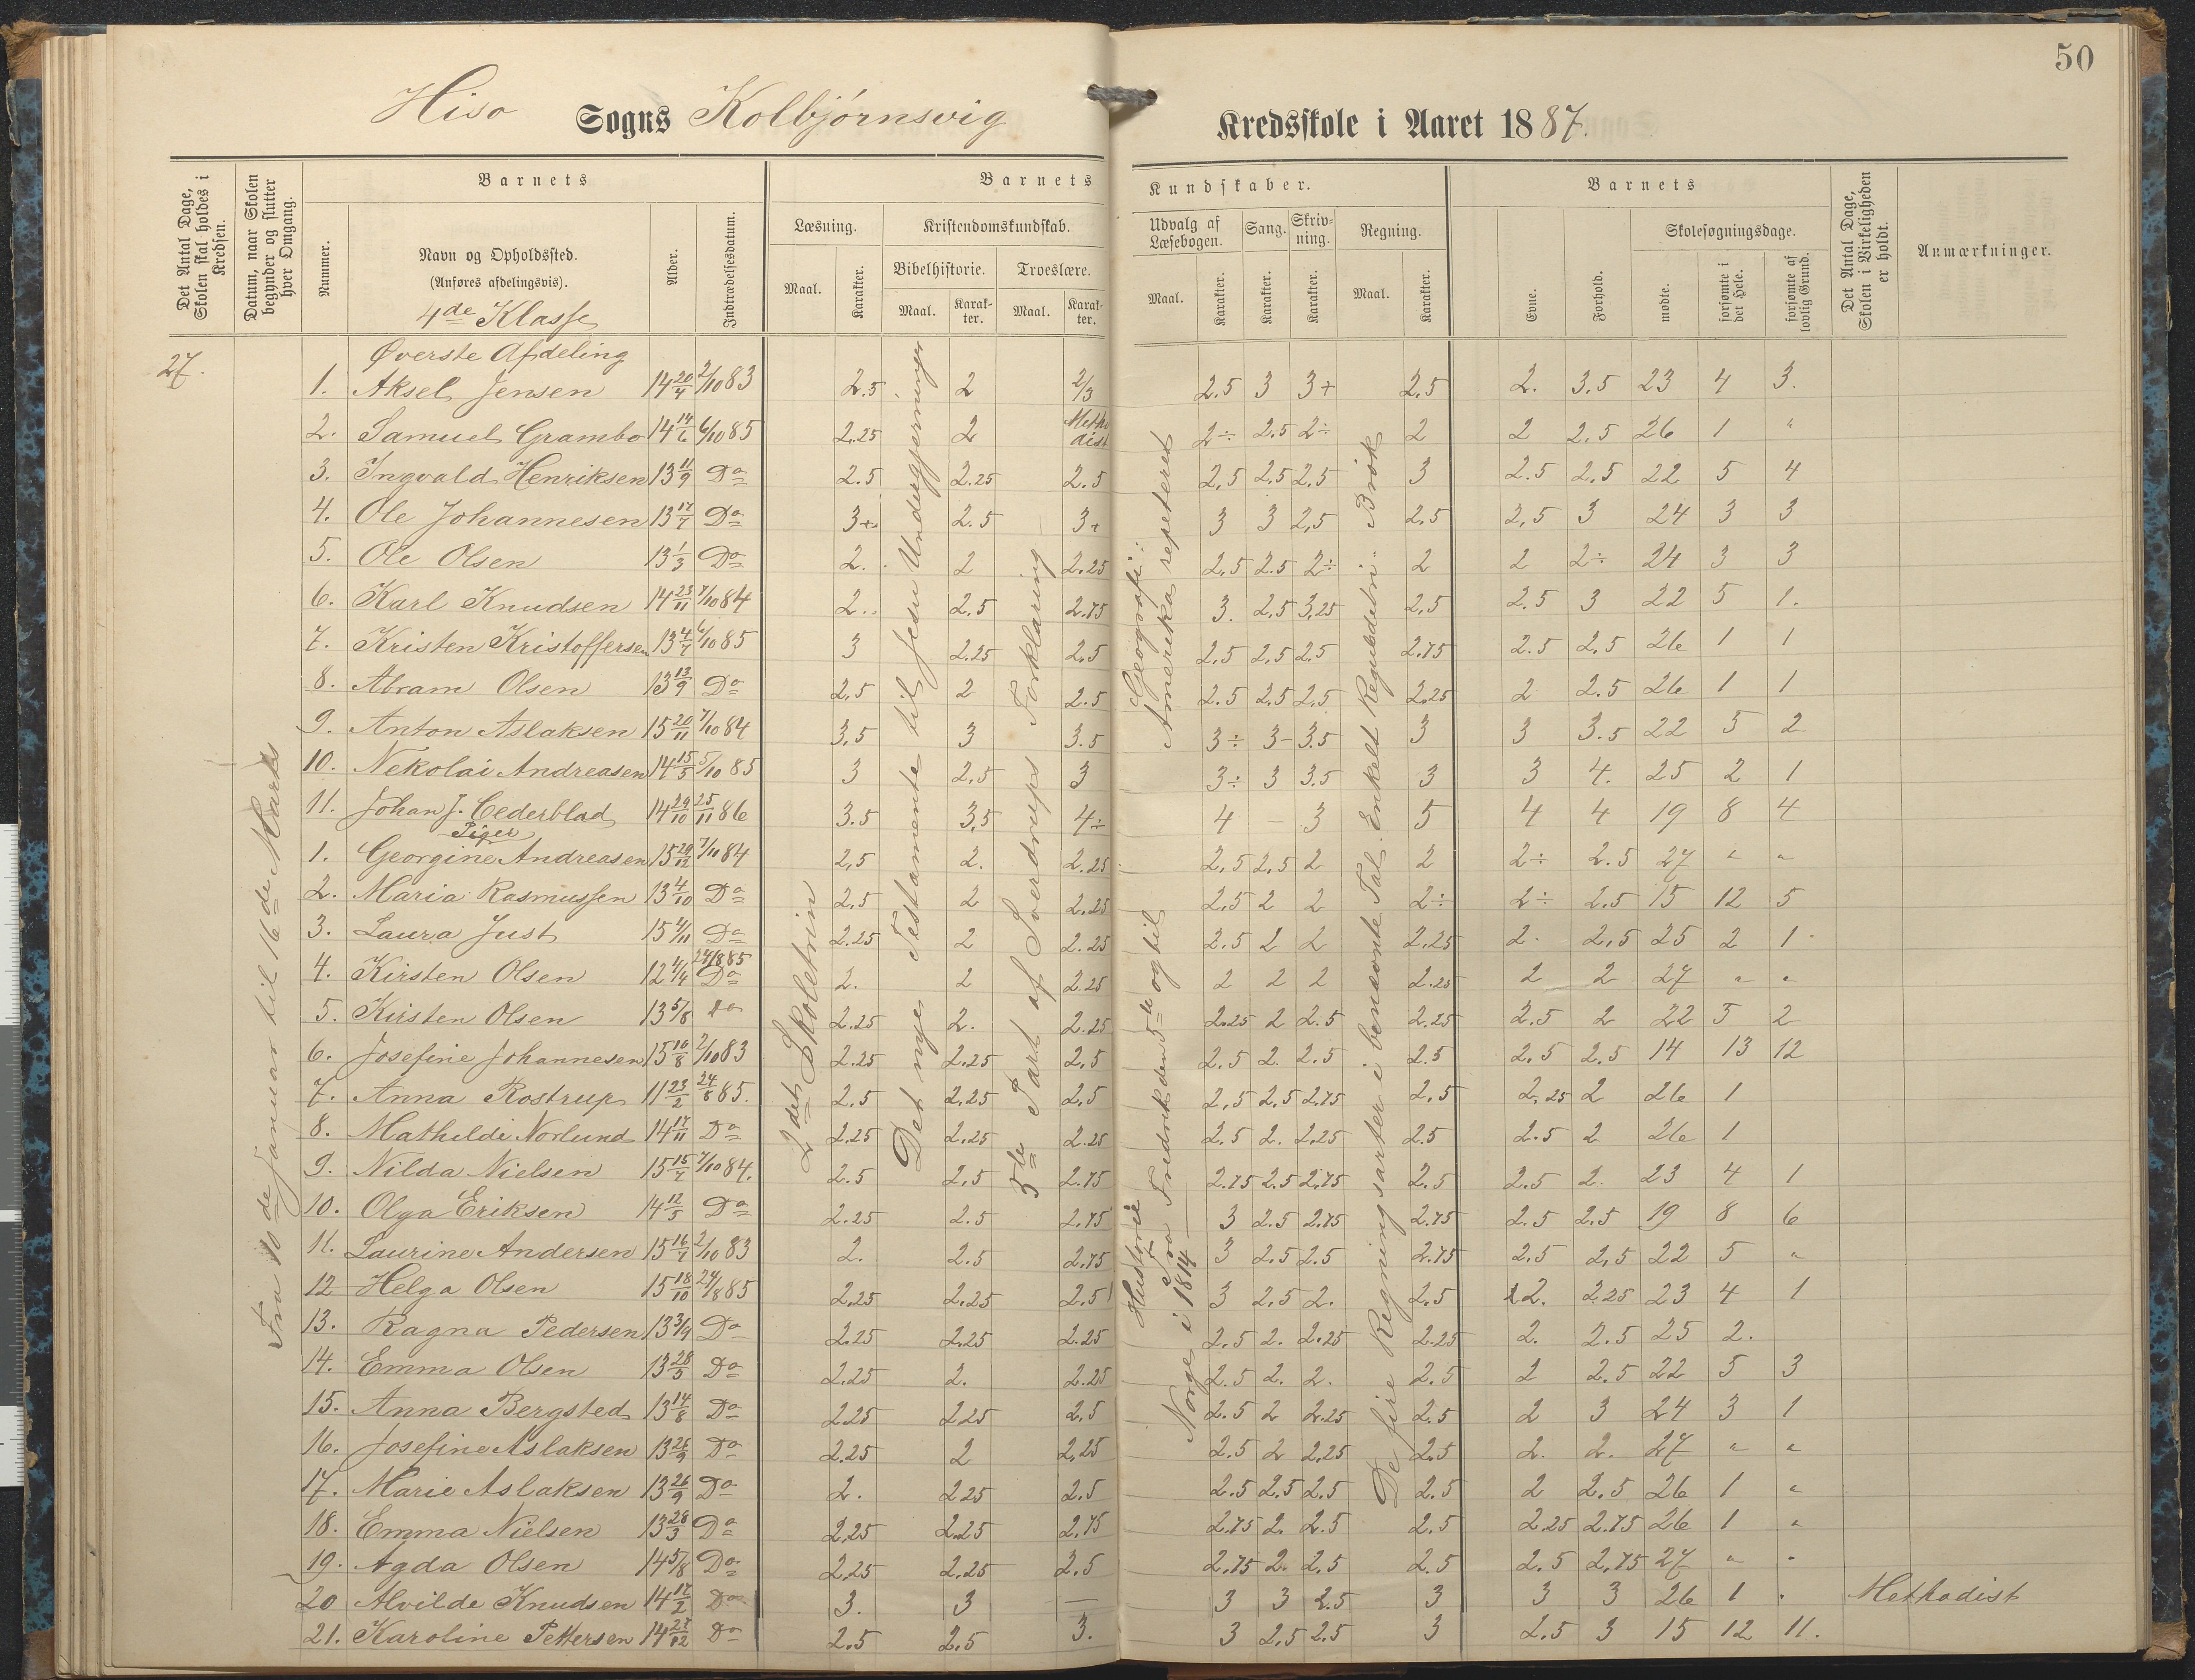 50
Hisø Sogns Kolbjørnsvig Kredsskole i Aaret 1887.
Det Antal Dage, Skolen skal holdes i Kredsen.
Datum, naar Skolen begynder og slutter hver Omgang.
Barnets
Nummer.
Navn og Opholdssted.
(Anføres afdelingsvis).
4de Klasse
Alder.
Indtrædelsesdatum.
Barnets Kundskaber.
Læsning.
Maal.
Karakter.
Kristendomskundskab.
Bibelhistorie.
Maal.
Karakter.
Troeslære.
Maal.
Karakter.
Udvalg af Læsebogen.
Maal.
Karakter.
Sang.
Karakter.
Skrivning.
Karakter.
Regning.
Maal.
Karakter.
Barnets
Evne.
Forhold.
Skolesøgningsdage.
mødte.
forsømte i det Hele.
forsømte af lovlig Grund.
Det Antal Dage, Skolen i Virkeligheden er holdt.
Anmærkninger.
27.
Fra 10de Januar til 16de Marts
2det Skoletrin
Det nye Testamente til Jesu Undergjerninger
3de Part af Sverdrups Forklaring
Geografi: Amerika repeteret
Historie fra Fredrik den 5te og til Norge i 1814
De fire Regningsarter i benævnte Tal. Enkelt Reguladetri. Brøk
Øverste Afdeling
1. Aksel Jensen 14 20/4 2/10 83 2.5 2 2/3 2.5 3 3+ 2,5 2. 3.5 23 4 3.
2. Samuel Grambo 14 14/6 6/10 85 2.25 2 Methodist 2÷ 2.5 2÷ 2 2 2.5 26 1 "
3. Ingvald Henriksen 13 11/9 Do 2.5 2.25 2.5 2,5 2,5 2,5 3 2.5 2,5 22 5 4
4. Ole Johannesen 13 17/7 Do 3+ 2.5 3+ 3 3 2,5 2,5 2,5 3 24 3 3
5. Ole Olsen 13 1/3 Do 2. 2 2.25 2,5 2.5 2÷ 2 2 2÷ 24 3 3
6. Karl Knudsen 14 23/11 7/10 84 2. 2.5 2.75 3. 2,5 3,25 2,5 2.5 3 22 5 1.
7. Kristen Kristoffersen 13 4/7 6/10 85 3 2.25 2,5 2,5 2,5 2.5 2.75 2.5 2,5 26 1 1
8. Abram Olsen 13 13/9 Do 2,5 2 2.5 2.5 2.5 2,5 2,25 2 2.5 26 1 1
9. Anton Aslaksen 15 20/11 7/10 84 3,5 3 3.5 3÷ 3- 3.5 3 3 3.5 22 5 2
10. Nekolai Andreasen 14 15/5 5/10 85 3 2,5 3 3÷ 3 3.5 3 3 4. 25 2 1
11. Johan J. Cederblad 14 29/10 25/11 86 3.5 3,5 4÷ 4 - 3 5 4 4 19 8 4
Piger
1. Georgine Andreasen 15 29/12 7/11 84 2,5 2. 2.25 2,5 2,5 2 2 2÷ 2.5 27 " "
2. Maria Rasmussen 13 4/10 Do 2,5 2 2.25 2,5 2 2 2÷ 2÷ 2.5 15 12 5
3. Laura Just 15 4/11 Do 2.25 2 2.25 2.5 2 2 2,25 2. 2,5 25 2 1
4. Kirsten Olsen 12 4/4 24/8 85 Do 2. 2 2.25 2 2 2 2.25 2 2 27 " "
5. Kirsten Olsen 13 5/8 Do 2.25 2. 2.25 2.25 2 2.5 2.25 2.5 2 22 5 2
6. Josefine Johannesen 15 16/8 2/10 83 2.25 2,25 2,5 2.5 2. 2.5 2.5 2,5 2.5 14 13 12
7. Anna Rostrup 11 23/2 24/8 85. 2.5 2,25 2,5 2,5 2,5 2.75 2,5 2,25 2 26 1
8. Mathilde Norlund 14 17/11 Do 2.25 2,25 2.25 2.5 2. 2.25 2.5 2.5 2 26 1
9. Nilda Nielsen 15 15/7 7/10 84. 2.5 2,5 2.75 2.75 2.5 2,75 2.5 2.5 2. 23 4 1
10. Olga Eriksen 14 12/5 Do 2.25 2.5 2,75 3 2.5 2.75 2.75 2.5 2.5 19 8 6
11. Laurine Andersen 15 16/7 2/10 83 2. 2.5 2,75 3 2.5 2.5 2.75 2.5 2,5 22 5 "
12 Helga Olsen 15 18/10 24/8 85 2,25 2,25 2.5 3 2,5 2. 2.5 2. 2.25 23 4 1
13. Ragna Pedersen 13 3/9 Do 2.25 2.25 2.25 2.5 2. 2.25 2.25 2. 2.5 25 2.
14. Emma Olsen 13 28/5 Do 2.25 2. 2.25 2.5 2. 2. 2.5 2 2.5 22 5 3
15. Anna Bergsted 13 14/8 Do 2.25 2.25 2,5 2.5 2 2.25 2.5 2 3 24 3 1
16. Josefine Aslaksen 13 26/9 Do 2.25 2 2,25 2.5 2 2,25 2.5 2. 2. 27 " "
17. Marie Aslaksen 13 26/9 Do 2. 2.25 2.5 2.5 2.5 2.5 2.5 2 2.5 26 1 "
18. Emma Nielsen 13 28/3 Do 2,25 2.25 2,75 2.75 2. 2.5 2.5 2.25 2.75 26 1 "
19. Agda Olsen 14 5/8 Do 2.25 2.25 2.5 2.75 2. 2,5 2.5 2.5 2,75 27 " "
20 Alvilde Knudsen 14 17/2 Do 3. 3 — 3 3 2.5 3 3 3 26 1 . Methodist
21. Karoline Pettersen 14 27/12 Do 2.5 2,5 3. 3 2,5 2.5 3 2.5 3 15 12 11.